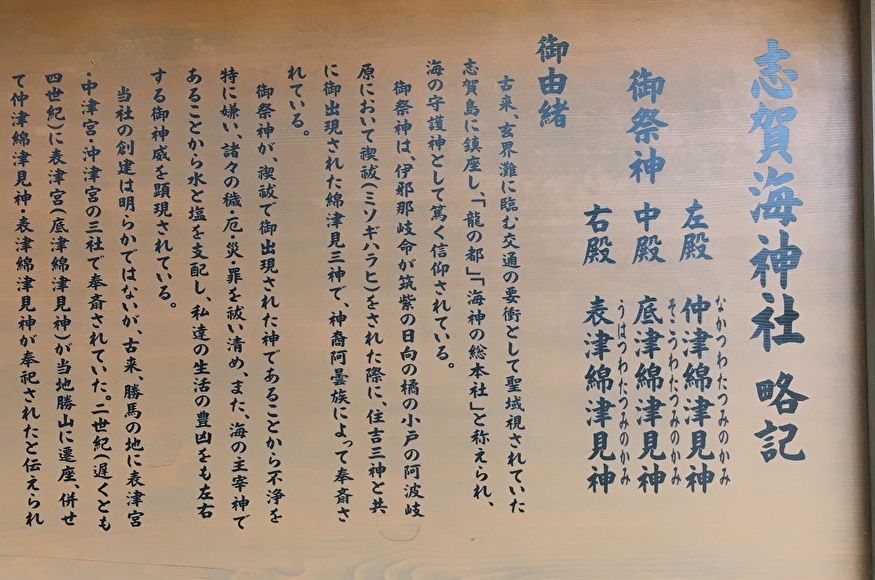 志賀海神社 略記
左殿 仲津綿津見神
なかつわたつみのかみ
御祭神 中殿 底津綿津見神
そこつわたつみのかみ
右殿 表津綿津見神
うはつわたつみのかみ
御由緒
古来、玄界灘に臨む交通の要衝として聖域視されていた
志賀島に鎮座し、「龍の都」「海神の総本社」と称えられ、
海の守護神として篤く信仰されている。
御祭神は、伊邪那岐命が筑紫の日向の橘の小戸の阿波岐
原において禊祓(ミソギハラヒ)をされた際に、住吉三神と共
に御出現された綿津見三神で、神裔阿曇族によって奉斎さ
れている。
御祭神が、禊祓で御出現された神であることから不浄を
特に嫌い、諸々の穢・厄・災・罪を祓い清め、また、海の主宰神で
あることから水と塩を支配し、私達の生活の豊凶をも左右
する御神威を顕現されている。
当社の創建は明らかではないが、古来、勝馬の地に表津宮
・中津宮・沖津宮の三社で奉斎されていた。二世紀(遅くとも
四世紀)に表津宮(底津綿津見神)が当地勝山に遷座、併せ
て仲津綿津見神・表津綿津見神が奉祀されたと伝えられ